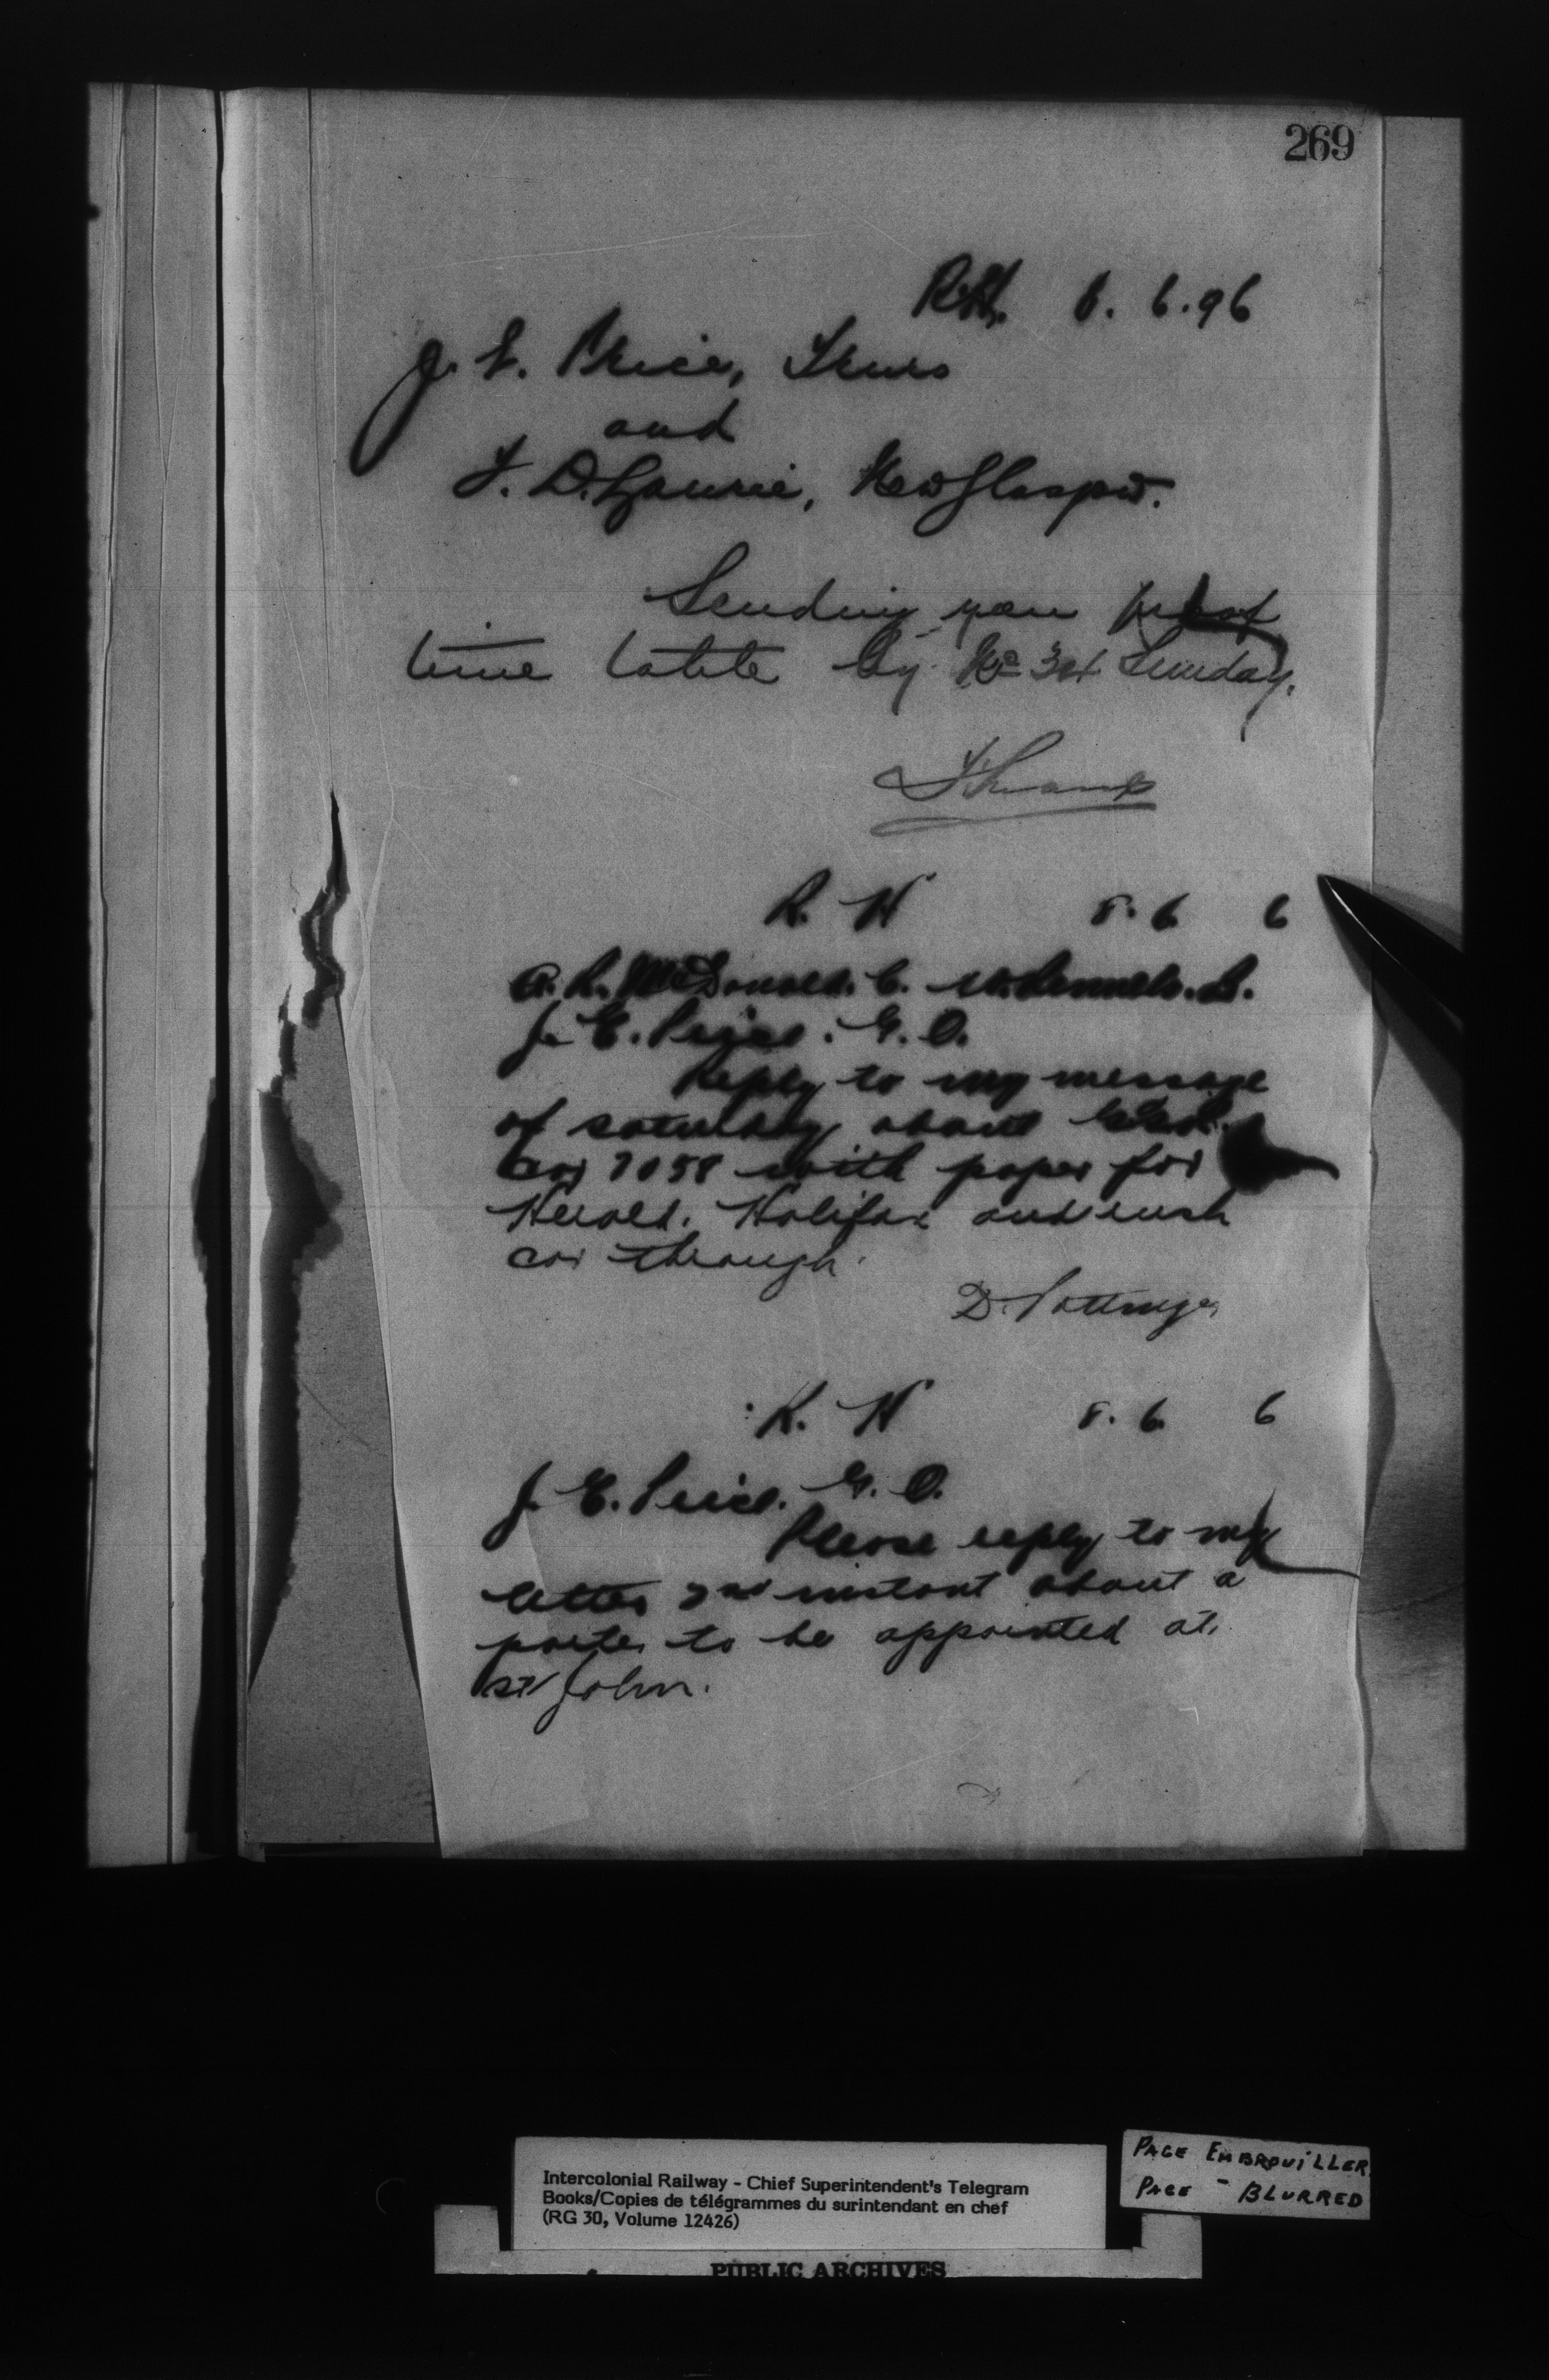 269
R.H. 6. 6. 96
J. E. Price, Truro
and
T. D. Laurie, New Glasgow.
Sending you proof
time table by No 34 Sunday.
R. H 8. 6 6
A. R. McDonald. C.
J. E. Price. G. O.
Reply to my message
of saturday about
car 7058 with paper for
Herald. Halifax and rush
car through.
D. Pottinger
R. H 8. 6. 6
J. E. Price. G. O.
Please reply to my
letter 2nd instant about a
porter to be appointed at
St John.
Intercolonial Railway - Chief Superintendent's Telegram
Books/Copies de télégrammes du surintendant en chef
(RG 30, Volume 12426)
PAGE EMBROUILLER
PAGE - BLURRED
PUBLIC ARCHIVES